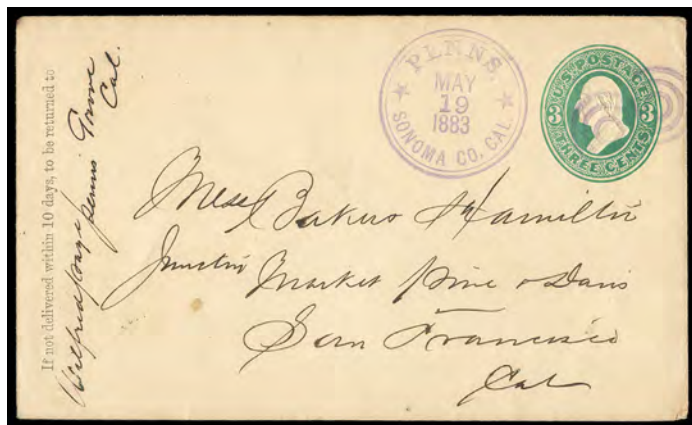 If not delivered within 10 days, to be returned to
Wilfred Page Penns Grove
Cal.
★ PENNS, ★
MAY
19
1883
SONOMA CO, CAL.
U.S. POSTAGE
3 3
THREE CENTS
Mess Bakers & Hamilton
Junctn Market Pine & Davis
San Francisco
Cal